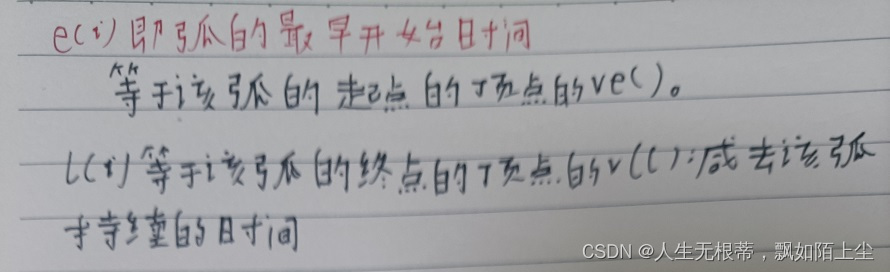 e(i)即弧的最早开始时间
等于该弧的起点的顶点的ve()。
l(i)等于该弧的终点的顶点的vl()减去该弧
持续的时间
CSDN @人生无根蒂，飘如陌上尘